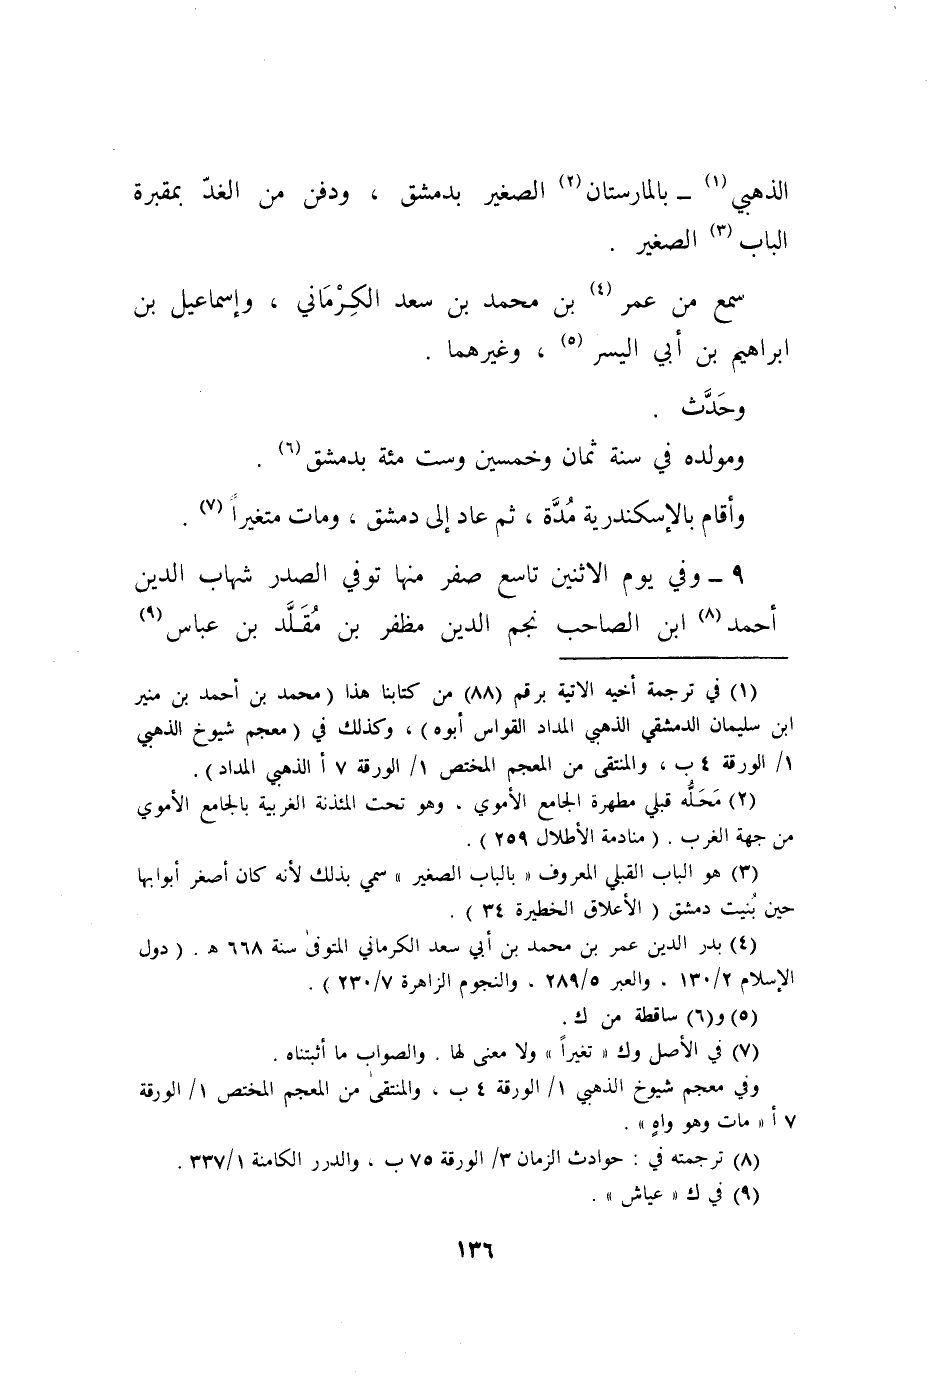 الذهبي (١) ـ بالمارستان (٢) الصغير بدمشق ، ودفن من الغدّ بمقبرة
الباب (٣) الصغير .
سمع من عمر (٤) بن محمد بن سعد الكِرْمَاني ، وإسماعيل بن
ابراهيم بن أبي اليسر (٥) ، وغيرهما .
وحَدَّث .
ومولده في سنة ثمان وخمسين وست مئة بدمشق (٦) .
وأقام بالإسكندرية مُدَّة ، ثم عاد إلى دمشق ، ومات متغيراً (٧) .
٩ ـ وفي يوم الاثنين تاسع صفر منها توفي الصدر شهاب الدين
أحمد (٨) ابن الصاحب نجم الدين مظفر بن مُقَلَّد بن عباس (٩)
(١) في ترجمة أخيه الاتية برقم (٨٨) من كتابنا هذا (محمد بن أحمد بن منير
ابن سليمان الدمشقي الذهبي المداد القواس أبوه) ، وكذلك في (معجم شيوخ الذهبي
١/ الورقة ٤ ب ، والمنتقى من المعجم المختص ١/ الورقة ٧ أ الذهبي المداد) .
(٢) مَحَلُّه قبلي مطهرة الجامع الأموي . وهو تحت المئذنة الغربية بالجامع الأموي
من جهة الغرب . ( منادمة الأطلال ٢٥٩ ) .
(٣) هو الباب القبلي المعروف « بالباب الصغير » سمي بذلك لأنه كان أصغر أبوابها
حين بُنيت دمشق ( الأعلاق الخطيرة ٣٤ ) .
(٤) بدر الدين عمر بن محمد بن أبي سعد الكرماني المتوفىٰ سنة ٦٦٨ هـ . ( دول
الإسلام ١٣٠/٢ . والعبر ٢٨٩/٥ . والنجوم الزاهرة ٢٣٠/٧ ) .
(٥) و(٦) ساقطة من ك .
(٧) في الأصل وك « تغيراً » ولا معنى لها . والصواب ما أثبتناه .
وفي معجم شيوخ الذهبي ١/ الورقة ٤ ب ، والمنتقىٰ من المعجم المختص ١/ الورقة
٧ أ « مات وهو واهٍ » .
(٨) ترجمته في : حوادث الزمان ٣/ الورقة ٧٥ ب ، والدرر الكامنة ٣٣٧/١ .
(٩) في ك « عياش » .
١٣٦